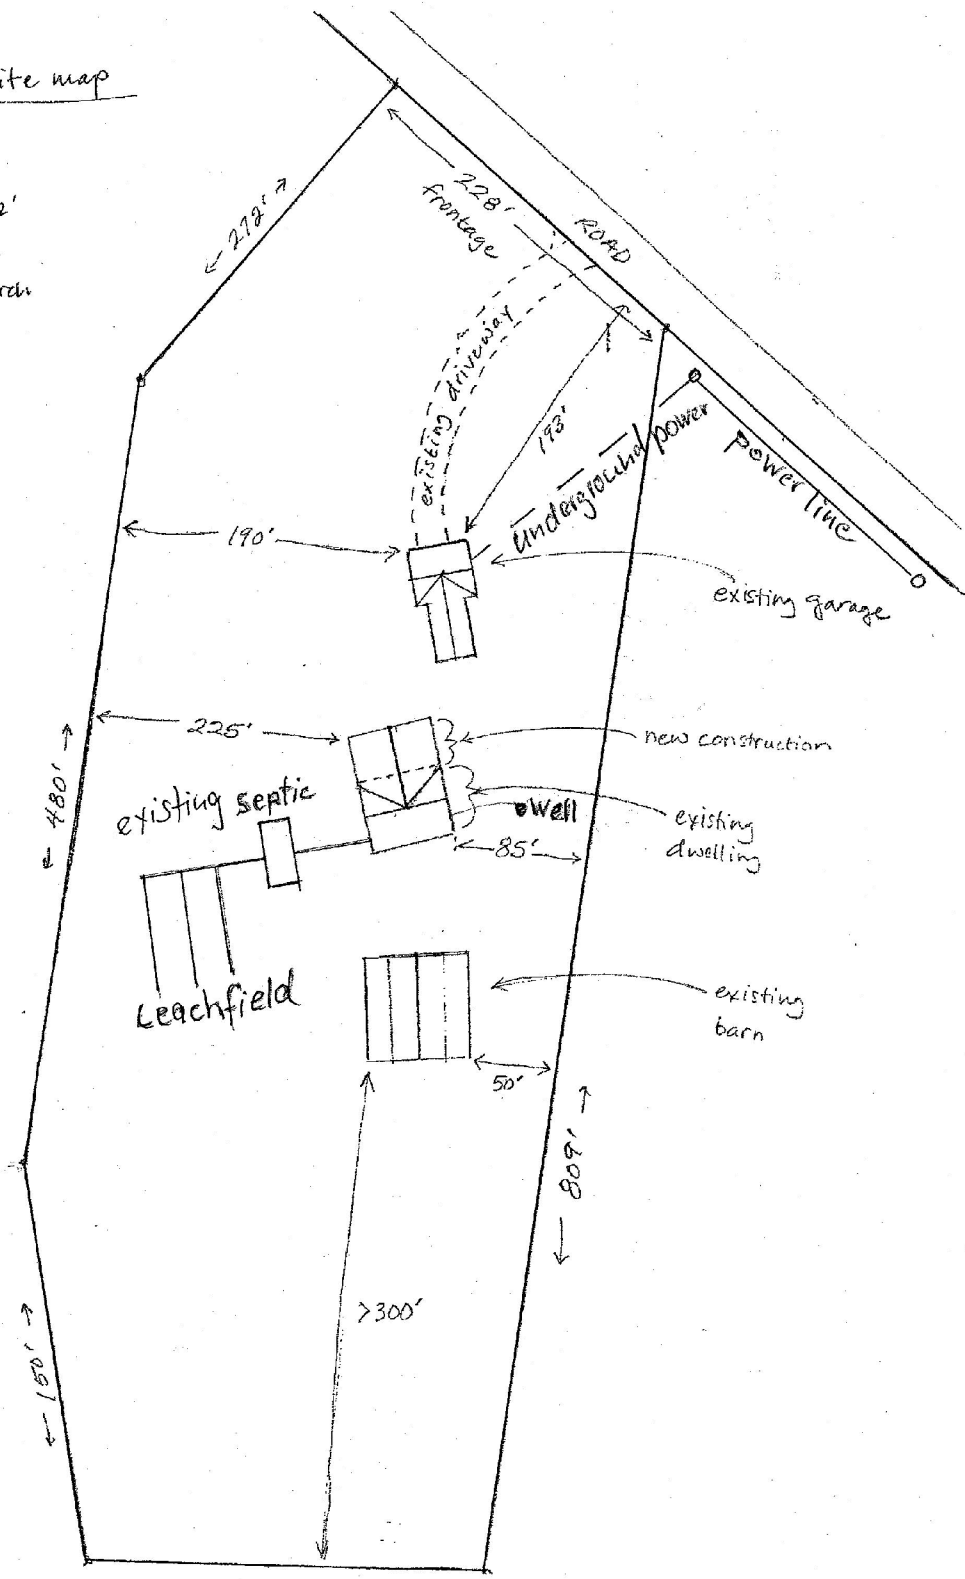 ite map
2'
rch
228'
frontage
ROAD
272'
existing driveway
193'
underground power
power line
190'
existing garage
225'
new construction
480'
existing septic
Well
existing
dwelling
85'
Leachfield
existing
barn
50'
809'
>300'
150'